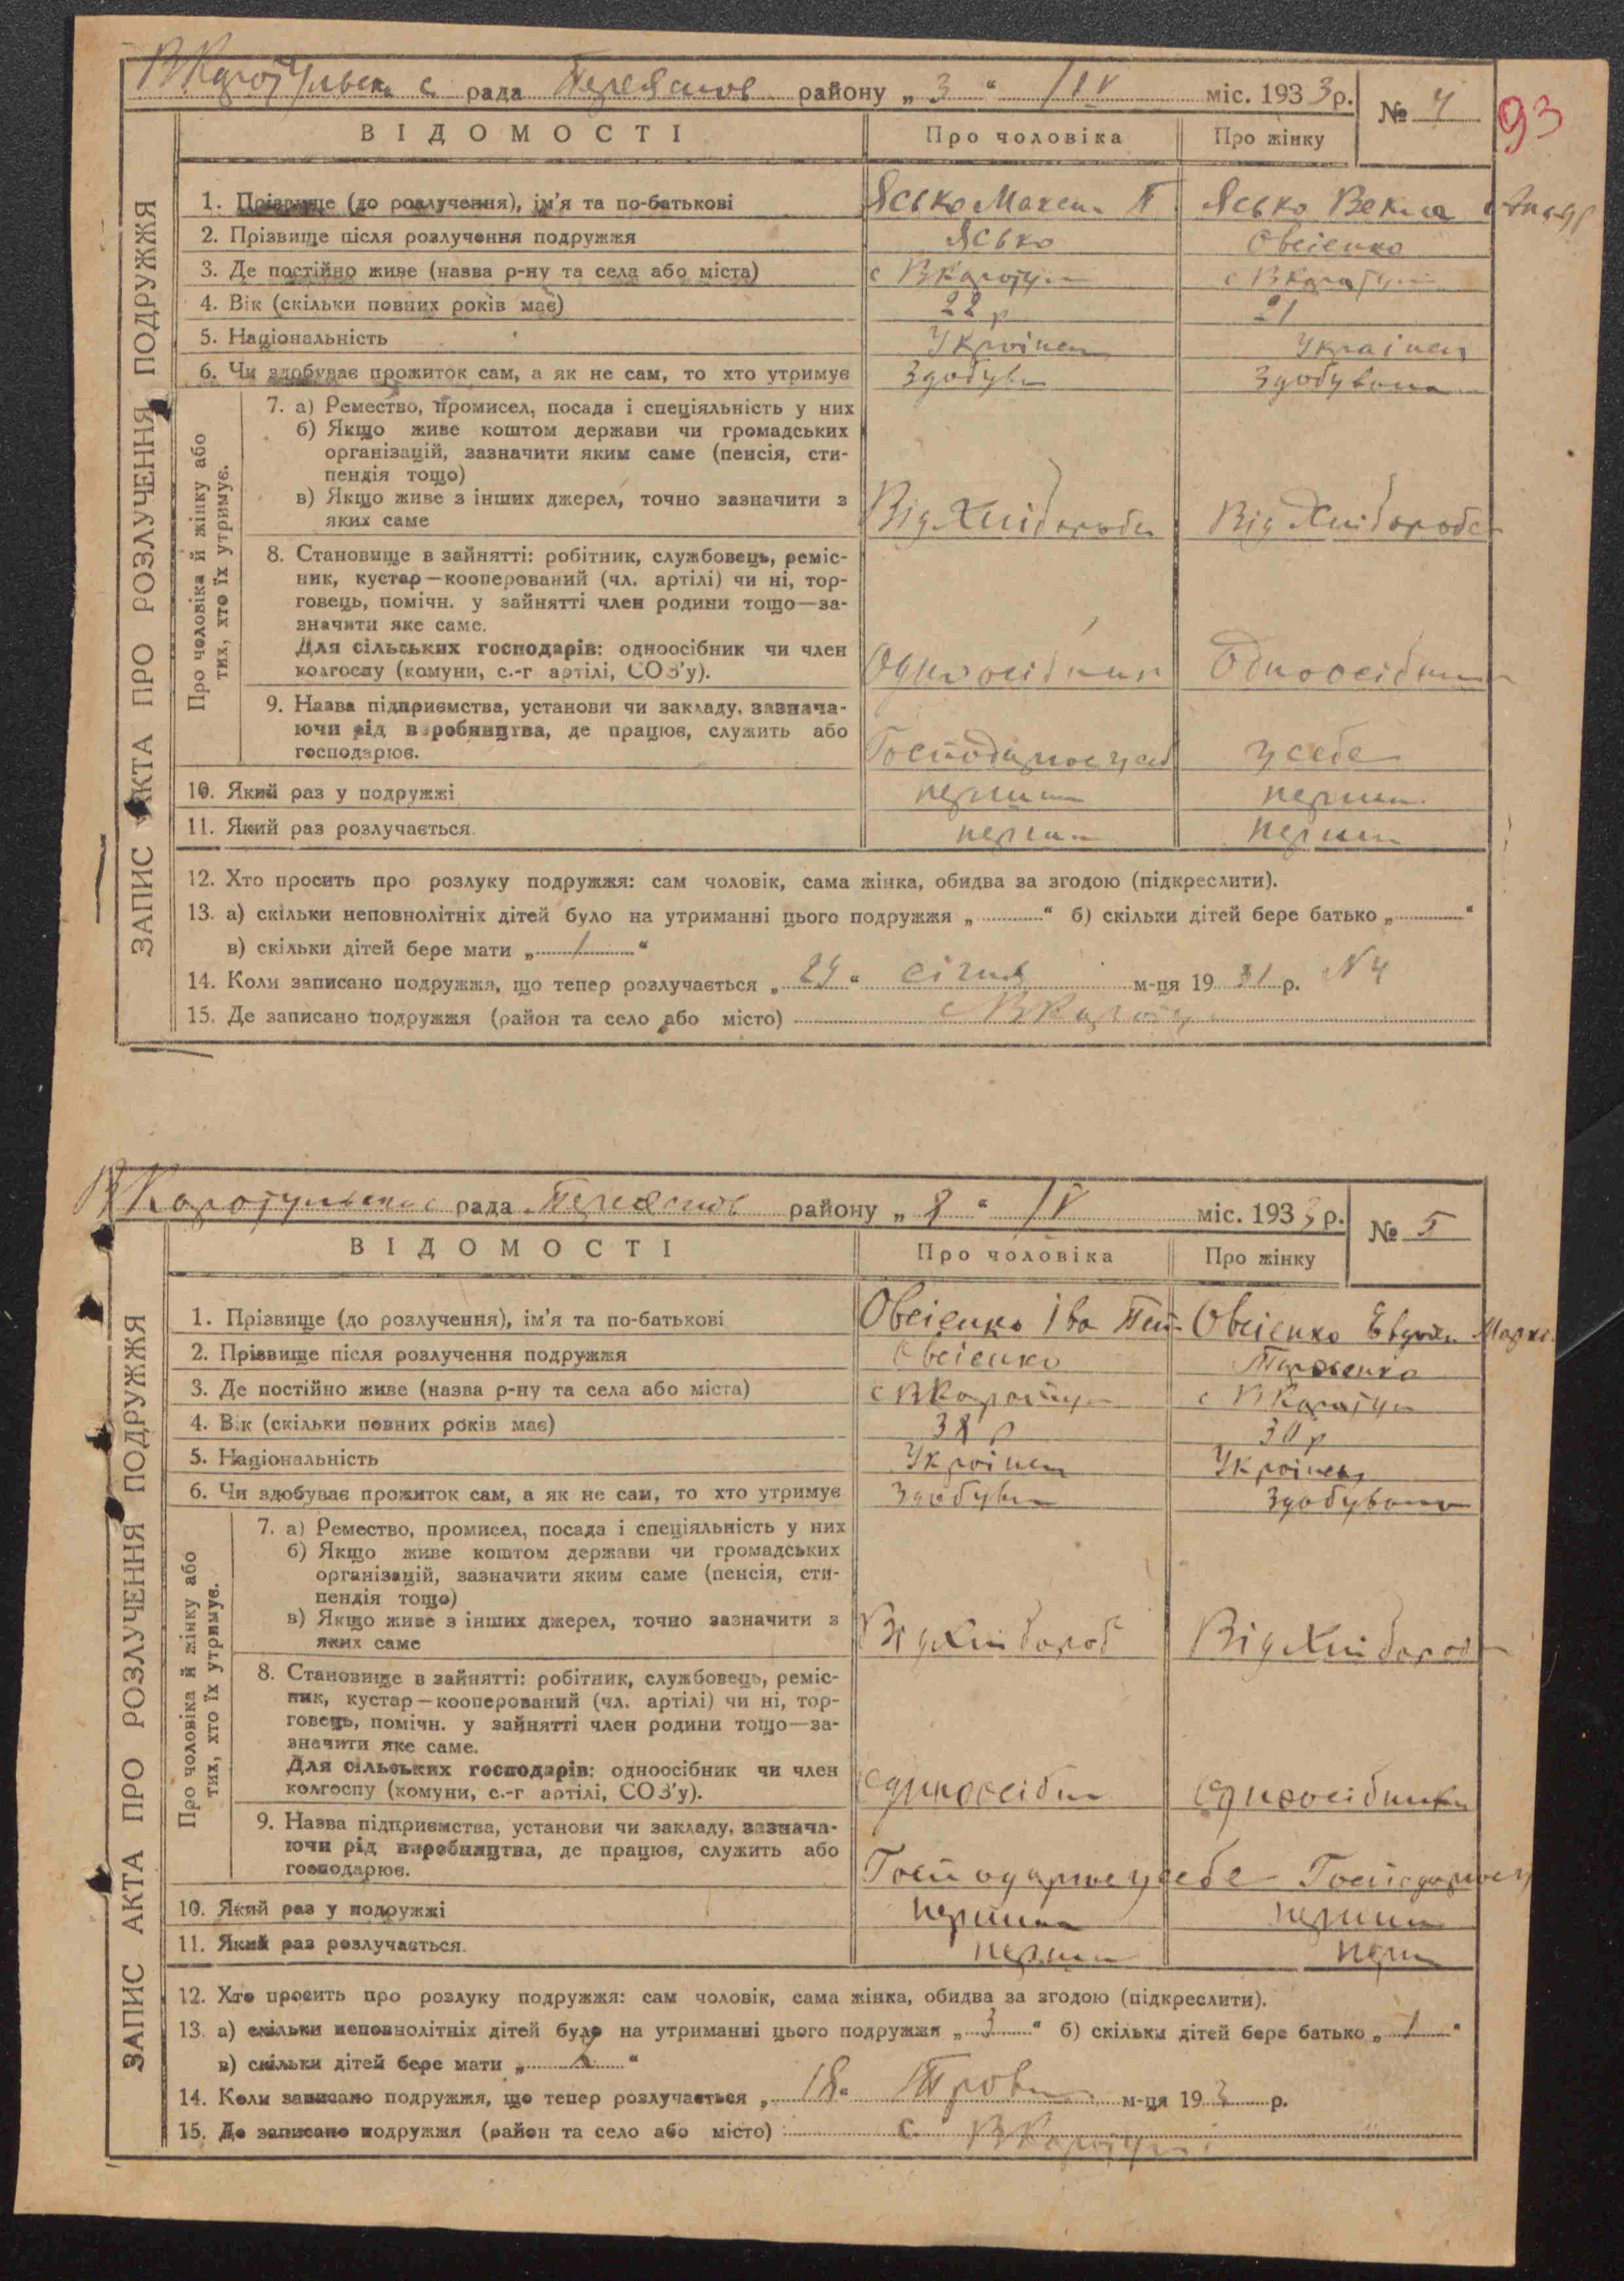 В Каротульська с. рада Переяслов району „ 3 “ IV міс. 1933 р. № 4
93
ВІДОМОСТІ Про чоловіка Про жінку
ЗАПИС АКТА ПРО РОЗЛУЧЕННЯ ПОДРУЖЖЯ
1. Прізвище (до розлучення), ім'я та по-батькові Ясько Максим П Ясько Векла
2. Прізвище після розлучення подружжя Ясько Овсіенко
3. Де постійно живе (назва р-ну та села або міста) с ВКаротул с ВКаратул
4. Вік (скільки повних років має) 22 р 21
5. Національність Україпец Українец
6. Чи здобуває прожиток сам, а як не сам, то хто утримує Здобува Здобувала
Про чоловіка й жінку або тих, хто їх утримує.
7. а) Ремество, промисел, посада і спеціяльність у них
б) Якщо живе коштом держави чи громадських
організацій, зазначити яким саме (пенсія, сти-
пендія тощо)
в) Якщо живе з інших джерел, точно зазначити з
яких саме Від Хліборобс Від Хліборобс
8. Становище в зайнятті: робітник, службовець, реміс-
ник, кустар—кооперований (чл. артілі) чи ні, тор-
говець, помічн. у зайнятті член родини тощо—за-
значити яке саме.
Для сільських господарів: одноосібник чи член
колгоспу (комуни, с.-г артілі, СОЗ'у). Одноосібник Одноосібник
9. Назва підприємства, установи чи закладу, зазнача-
ючи рід виробництва, де працює, служить або
господарює. Господарює у себ у себе
10. Який раз у подружжі перший перший
11. Який раз розлучається. перший перший
12. Хто просить про розлуку подружжя: сам чоловік, сама жінка, обидва за згодою (підкреслити).
13. а) скільки неповнолітніх дітей було на утриманні цього подружжя „ “ б) скільки дітей бере батько „ “
в) скільки дітей бере мати „ / “
14. Коли записано подружжя, що тепер розлучається „ 24 “ січня м-ця 19 31 р. N 4
15. Де записано подружжя (район та село або місто) с ВКарот
В Каротульська с рада Переяслов району „ 8 “ IV міс. 1933 р. № 5
ВІДОМОСТІ Про чоловіка Про жінку
ЗАПИС АКТА ПРО РОЗЛУЧЕННЯ ПОДРУЖЖЯ
1. Прізвище (до розлучення), ім'я та по-батькові Овсіенко Іва Овсіенко Евдокі Марке
2. Прізвище після розлучення подружжя Овсіенко
3. Де постійно живе (назва р-ну та села або міста) с ВКаротул с ВКаратул
4. Вік (скільки повних років має) 38 р 30 р
5. Національність Українец Українец
6. Чи здобуває прожиток сам, а як не сам, то хто утримує Здобува Здобувала
Про чоловіка й жінку або тих, хто їх утримує.
7. а) Ремество, промисел, посада і спеціяльність у них
б) Якщо живе коштом держави чи громадських
організацій, зазначити яким саме (пенсія, сти-
пендія тощо)
в) Якщо живе з інших джерел, точно зазначити з
яких саме Від Хлібороб Від Хлібороб
8. Становище в зайнятті: робітник, службовець, реміс-
ник, кустар—кооперований (чл. артілі) чи ні, тор-
говець, помічн. у зайнятті член родини тощо—за-
значити яке саме.
Для сільських господарів: одноосібник чи член
колгоспу (комуни, с.-г артілі, СОЗ'у). Одноосібн Одноосібник
9. Назва підприємства, установи чи закладу, зазнача-
ючи рід виробництва, де працює, служить або
господарює. Господарює у себе Господарює у
10. Який раз у подружжі перший перший
11. Який раз розлучається. перший перш
12. Хто просить про розлуку подружжя: сам чоловік, сама жінка, обидва за згодою (підкреслити).
13. а) скільки неповнолітніх дітей було на утриманні цього подружжя „ 3 “ б) скільки дітей бере батько „ 1 “
в) скільки дітей бере мати „ 2 “
14. Коли записано подружжя, що тепер розлучається „ 18 “ м-ця 19 р.
15. Де записано подружжя (район та село або місто) с ВКаротул